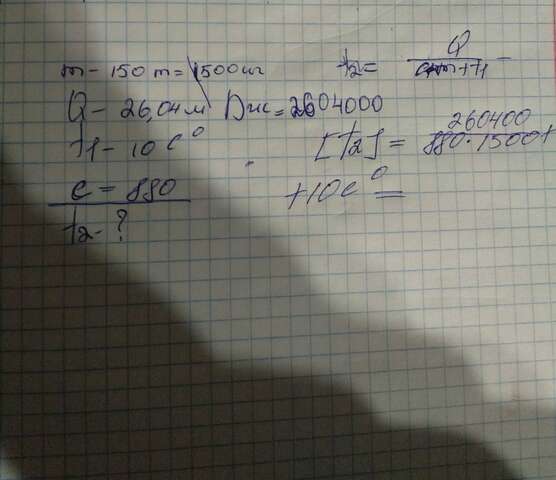 m - 150 т = 1500 кг
Q - 26,04 м Дж = 2604000
t1 - 10 c°
c = 880
t2 - ?
t2 = Q / cm + t1
[t2] = 260400 / 880 · 1500 +
+10c° =